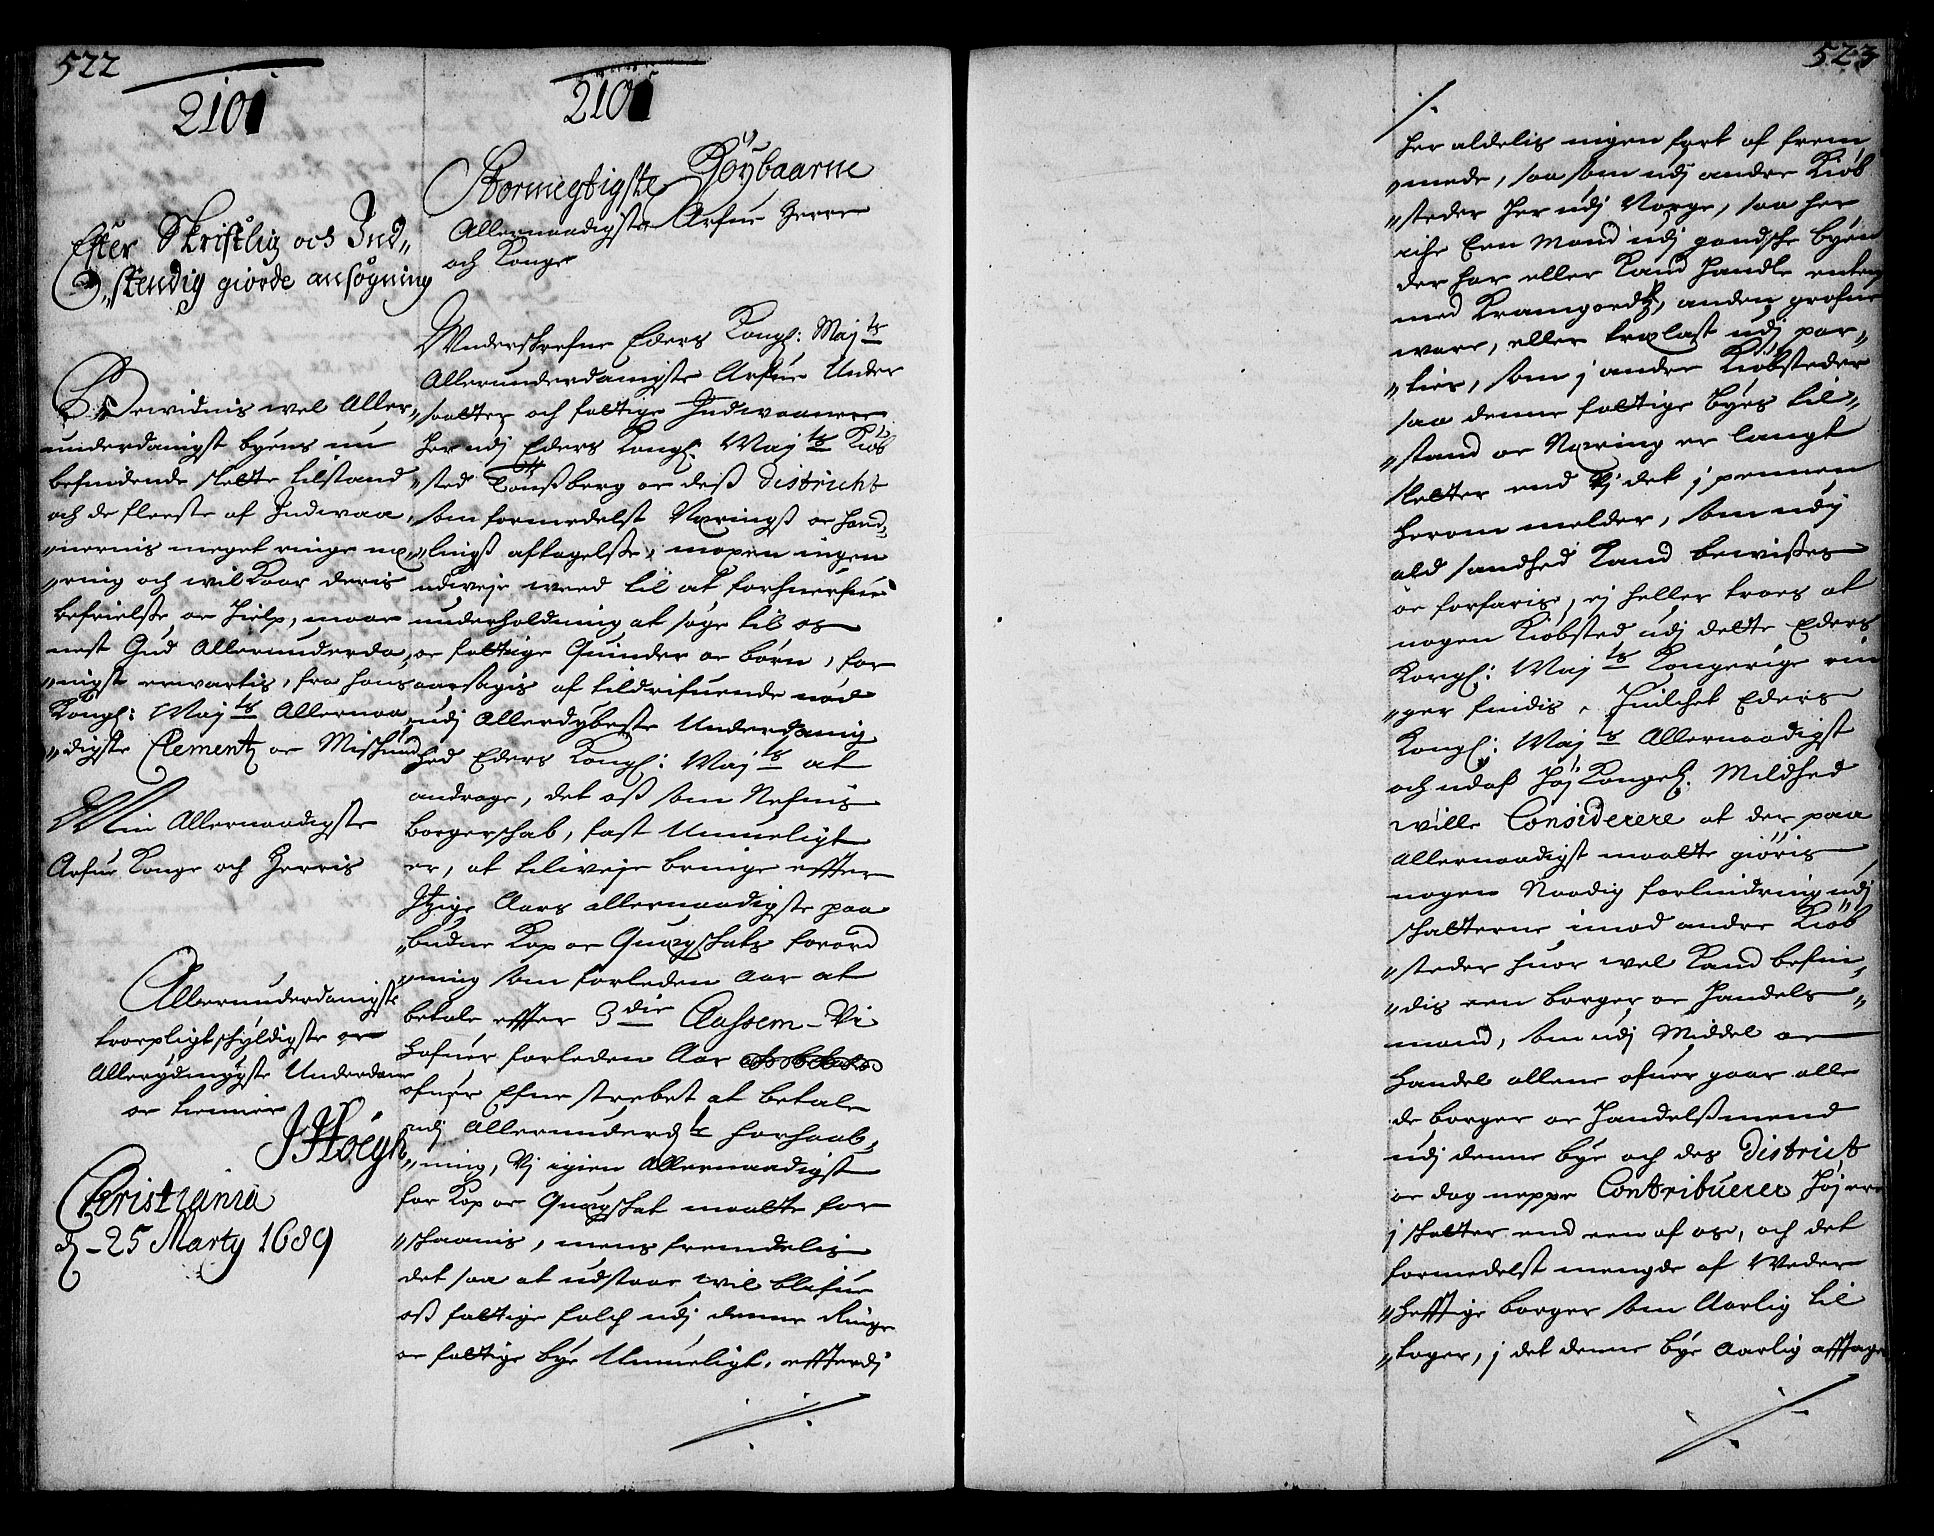 522
2101
Efter Skriftlig och Ind„
„stendig giorde ansøgning
Bewidnis wel Aller„
underdanigst byens nu
befindende slette tilstand
och de fleeste af Indwaa„
„nernis meget ringe næ„
„ring och wilkaar deris
befrielse oc hielp, maae
nest Gud Allerunderda„
„nigst erwartis, fra hans
Kongl: Maj ts Allernaa„
„digste Clementz oc Mischund
Min Allernaadigste
Arfue Konge och Herris
Allerunderdanigste
troepligtschyldigste oc
Allerydmygste Underdan
oc tienner
J Høegh
Christiania
d – 25 Marty 1689
2101
Stormegtigste Høybaarne
Allernaadigste Arfue Herre
och Konge
Underschrefne Eders Kongl: Maj ts
Allerunderdanigste Arfue Under
saatter och fattige Indwaanere
her udj Eders Kongl. Maj ts Kiøb
„sted Tønsßberg oc deß District
som formedelst Næringß oc hand„
„lingß aftagelse, mæxen ingen
udweje weed til at forhuerfue
underholdning at søge til os
oc fattige Quinder oc børn, for
aarsagis af tildrifuende nød
udj Allerdybeste Underdanig
hed Eders Kongl: Maj ts at
andrage, det oß som Nefnis
borgerschab, fast Umueligt
er, at tilweje bringe effter
Itzige Aars allernaadigste paa
„budne Kop oc Quægschats forord
„ning som forleden Aar at
betale effter 3 die Classem – Vi
hafuer forleden Aar
ofuer Efne strebet at betale
udj Allerunderd te forhaab„
„ning, Vj igien Allernaadigst
for Kop oc Quægschat maatte for
„schaanis, mens fremdelis
det saa at udstaae wil blifue
oß fattige folch udj denne Ringe
oc fattige bye Umueligt, effterdj
523
her aldelis ingen fart af frem„
„mede, saa som udj andre Kiøb
„steder her udj Norge, saa her
iche Een Mand udj gandsche byen
der har eller Kand handle enten
med Kramgoedtz, anden grofue
ware, eller trælast udj par„
„tier, som j andre Kiøbsteder
saa denne fattige byes til„
„stand oc Næring er langt
sletter end Vj det j pennen
herom melder, som udj
ald sandhed Kand bewißes
oc forfaris, ej heller troes at
nogen Kiøbsted udj dette Eders
Kongl: Maj ts Kongerige rin
„ger findis, huilchet Eders
Kongl: Maj ts Allernaadigst
och udaf høj Kongel. Mildhed
wille Considerere at der paa
Allernaadigst maatte giøris
nogen Naadig forlindring udj
schatterne imod andre Kiøb
„steder huor wel Kand befin„
„dis een borger oc handels„
mand, som udj Middel oc
handel allene ofuer gaar alle
de borger oc handelßmend
udj denne bye och des District
oc dog neppe Contribuerer højere
j schatter end een af os, och det
formedelst mengde af Weder
„hefftige borger som Aarlig til
„tager, j det denne bye Aarlig afftager